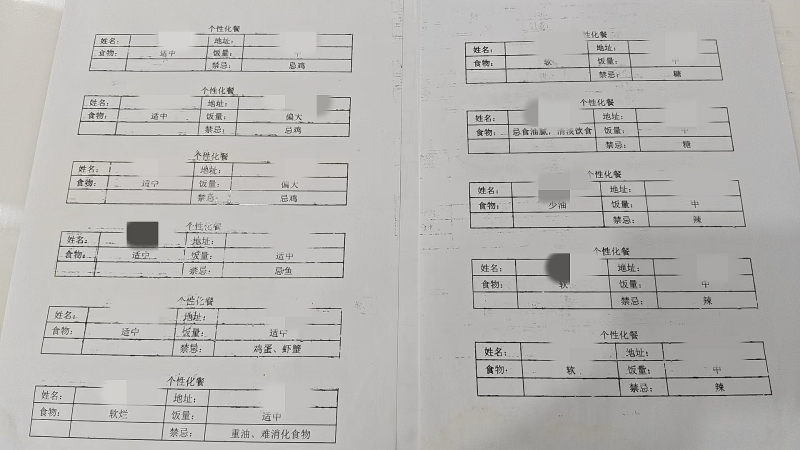 个性化餐
姓名： 地址：
食物： 适中 饭量： 中
禁忌： 忌鸡
个性化餐
姓名： 地址：
食物： 适中 饭量： 偏大
禁忌： 忌鸡
个性化餐
姓名： 地址：
食物： 适中 饭量： 偏大
禁忌： 忌鸡
个性化餐
姓名： 地址：
食物： 适中 饭量： 适中
禁忌： 忌鱼
个性化餐
姓名： 地址：
食物： 适中 饭量： 适中
禁忌： 鸡蛋、虾蟹
个性化餐
姓名： 地址：
食物： 软烂 饭量： 适中
禁忌： 重油、难消化食物
性化餐
姓名： 地址：
食物： 软 饭量： 中
禁忌： 糖
个性化餐
姓名： 地址：
食物： 忌食油腻，清淡饮食 饭量： 中
禁忌： 糖
个性化餐
姓名： 地址：
食物： 少油 饭量： 中
禁忌： 辣
个性化餐
姓名： 地址：
食物： 软 饭量： 中
禁忌： 辣
个性化餐
姓名： 地址：
食物： 软 饭量： 中
禁忌： 辣